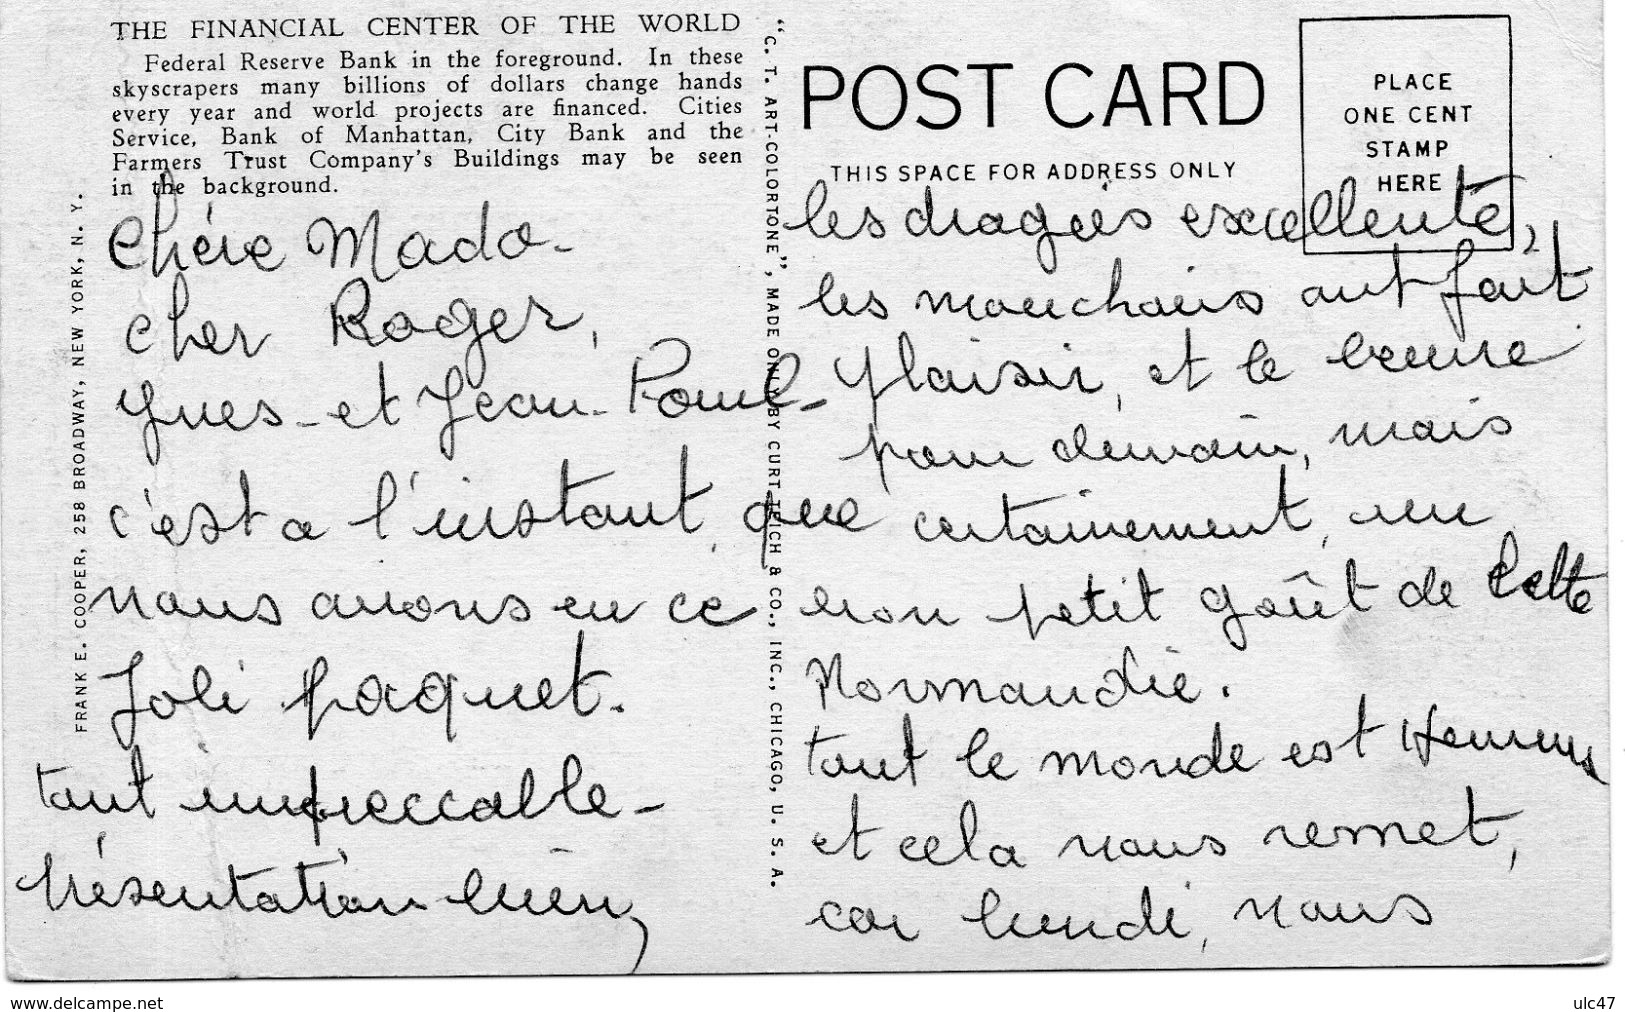 THE FINANCIAL CENTER OF THE WORLD
Federal Reserve Bank in the foreground. In these
skyscrapers many billions of dollars change hands
every year and world projects are financed. Cities
Service, Bank of Manhattan, City Bank and the
Farmers Trust Company's Buildings may be seen
in the background.
FRANK E. COOPER, 258 BROADWAY, NEW YORK, N. Y.
Chére Mado-
cher Roger,
Yves-et Jean-Paul-
c'est a l'instant, que
nous avons eu ce
Joli paquet.
tout impeccable-
présentation
"C. T. ART-COLORTONE", MADE ONLY BY CURT TEICH & CO., INC., CHICAGO, U. S. A.
POST CARD
THIS SPACE FOR ADDRESS ONLY
PLACE
ONE CENT
STAMP
HERE
les dragées excellente,
les mouchoirs ont fait
plaisir, et le beurre
pour demain, mais
certainement, un
bon petit goût de Cette
Normandie.
tout le monde est Heureux
et cela nous remet,
car lundi, nous
www.delcampe.net
ulc47